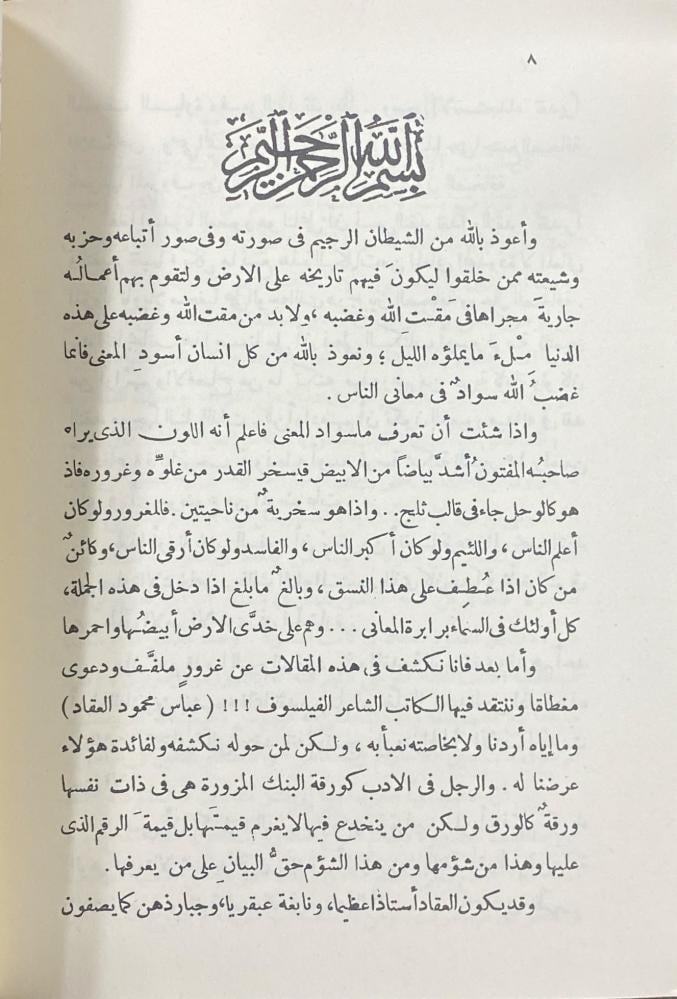 ٨
بسم الله الرحمن الرحيم
وأعوذ بالله من الشيطان الرجيم فى صورته وفى صور أتباعه وحزبه
وشيعته ممن خلقوا ليكونَ فيهم تاريخه على الارض ولتقوم بهم أعمالُه
جاريةَ مجراها فى مقْت الله وغضبه ، ولا بد من مقت الله وغضبه على هذه
الدنيا مِلءَ ما يملؤه الليل ؛ ونعوذ بالله من كل انسان أسودِ المعنى فانما
غضبُ الله سوادٌ فى معانى الناس .
واذا شئت أن تعرف ما سواد المعنى فاعلم أنه اللون الذى يراه
صاحبُه المفتونُ أشدَّ بياضاً من الابيض فيسخر القدر من غلوِّه وغروره فاذ
هو كالوحل جاء فى قالب ثلج .. واذا هو سخريةٌ من ناحيتين . فالمغرور ولو كان
أعلم الناس ، واللئيم ولو كان أكبر الناس ، والفاسد ولو كان أرقى الناس ، وكائنٌ
من كان اذا عُطِف على هذا النسق ، وبالغٌ ما بلغ اذا دخل فى هذه الجملة ،
كل أولئك فى السماء برابرة المعانى ... وهم على خدَّى الارض أبيضُها واحمرها
وأما بعد فانا نكشف فى هذه المقالات عن غرورٍ ملفَّف ودعوى
مغطاة وننتقد فيها الكاتب الشاعر الفيلسوف !!! ( عباس محمود العقاد )
وما إياه أردنا ولا بخاصته نعبأ به ، ولكن لمن حوله نكشفه ولفائدة هؤلاء
عرضنا له . والرجل فى الادب كورقة البنك المزورة هى فى ذات نفسها
ورقةٌ كالورق ولكن من ينخدع فيها لا يغرم قيمتَها بل قيمةَ الرقم الذى
عليها وهذا من شؤمها ومن هذا الشؤم حقُّ البيان على من يعرفها .
وقد يكون العقاد أستاذا عظيما ، ونابغة عبقريا ، وجبار ذهن كما يصفون